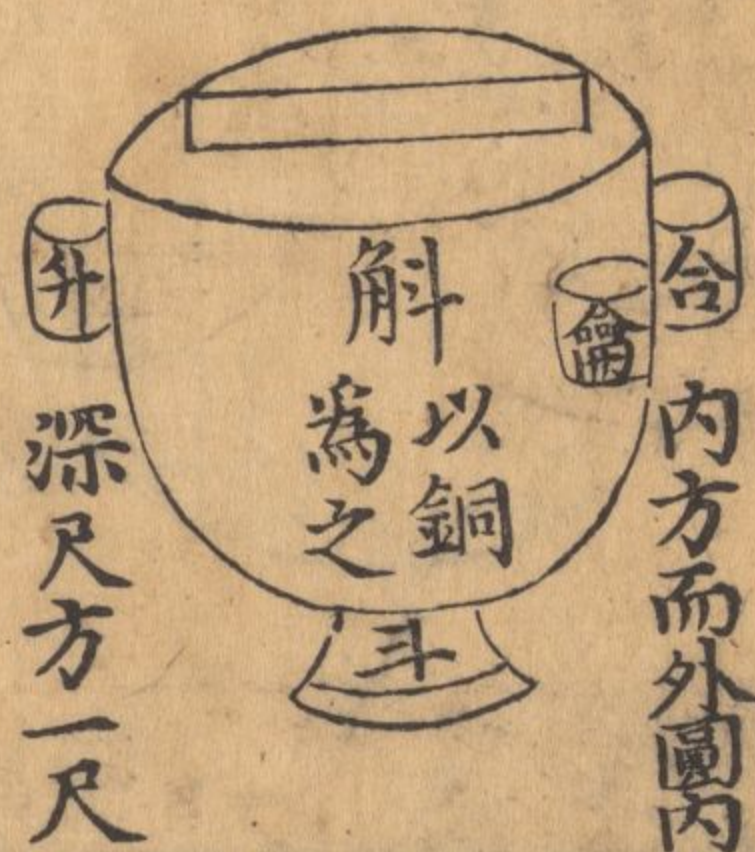 合
内方而外圓内
龠
斛
以銅
為之
斗
升
深尺方一尺